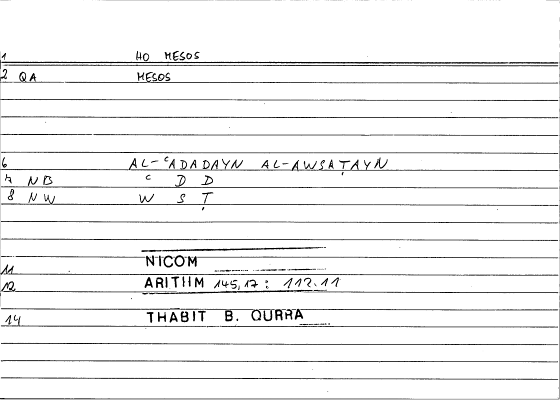 1 HO MESOS
2 QA MESOS
6 AL-ʿADADAYN AL-AWSAṬAYN
7 NB ʿ D D
8 NW W S Ṭ
11 NICOM
12 ARITHM 145,17: 112.11
14 THABIT B. QURRA